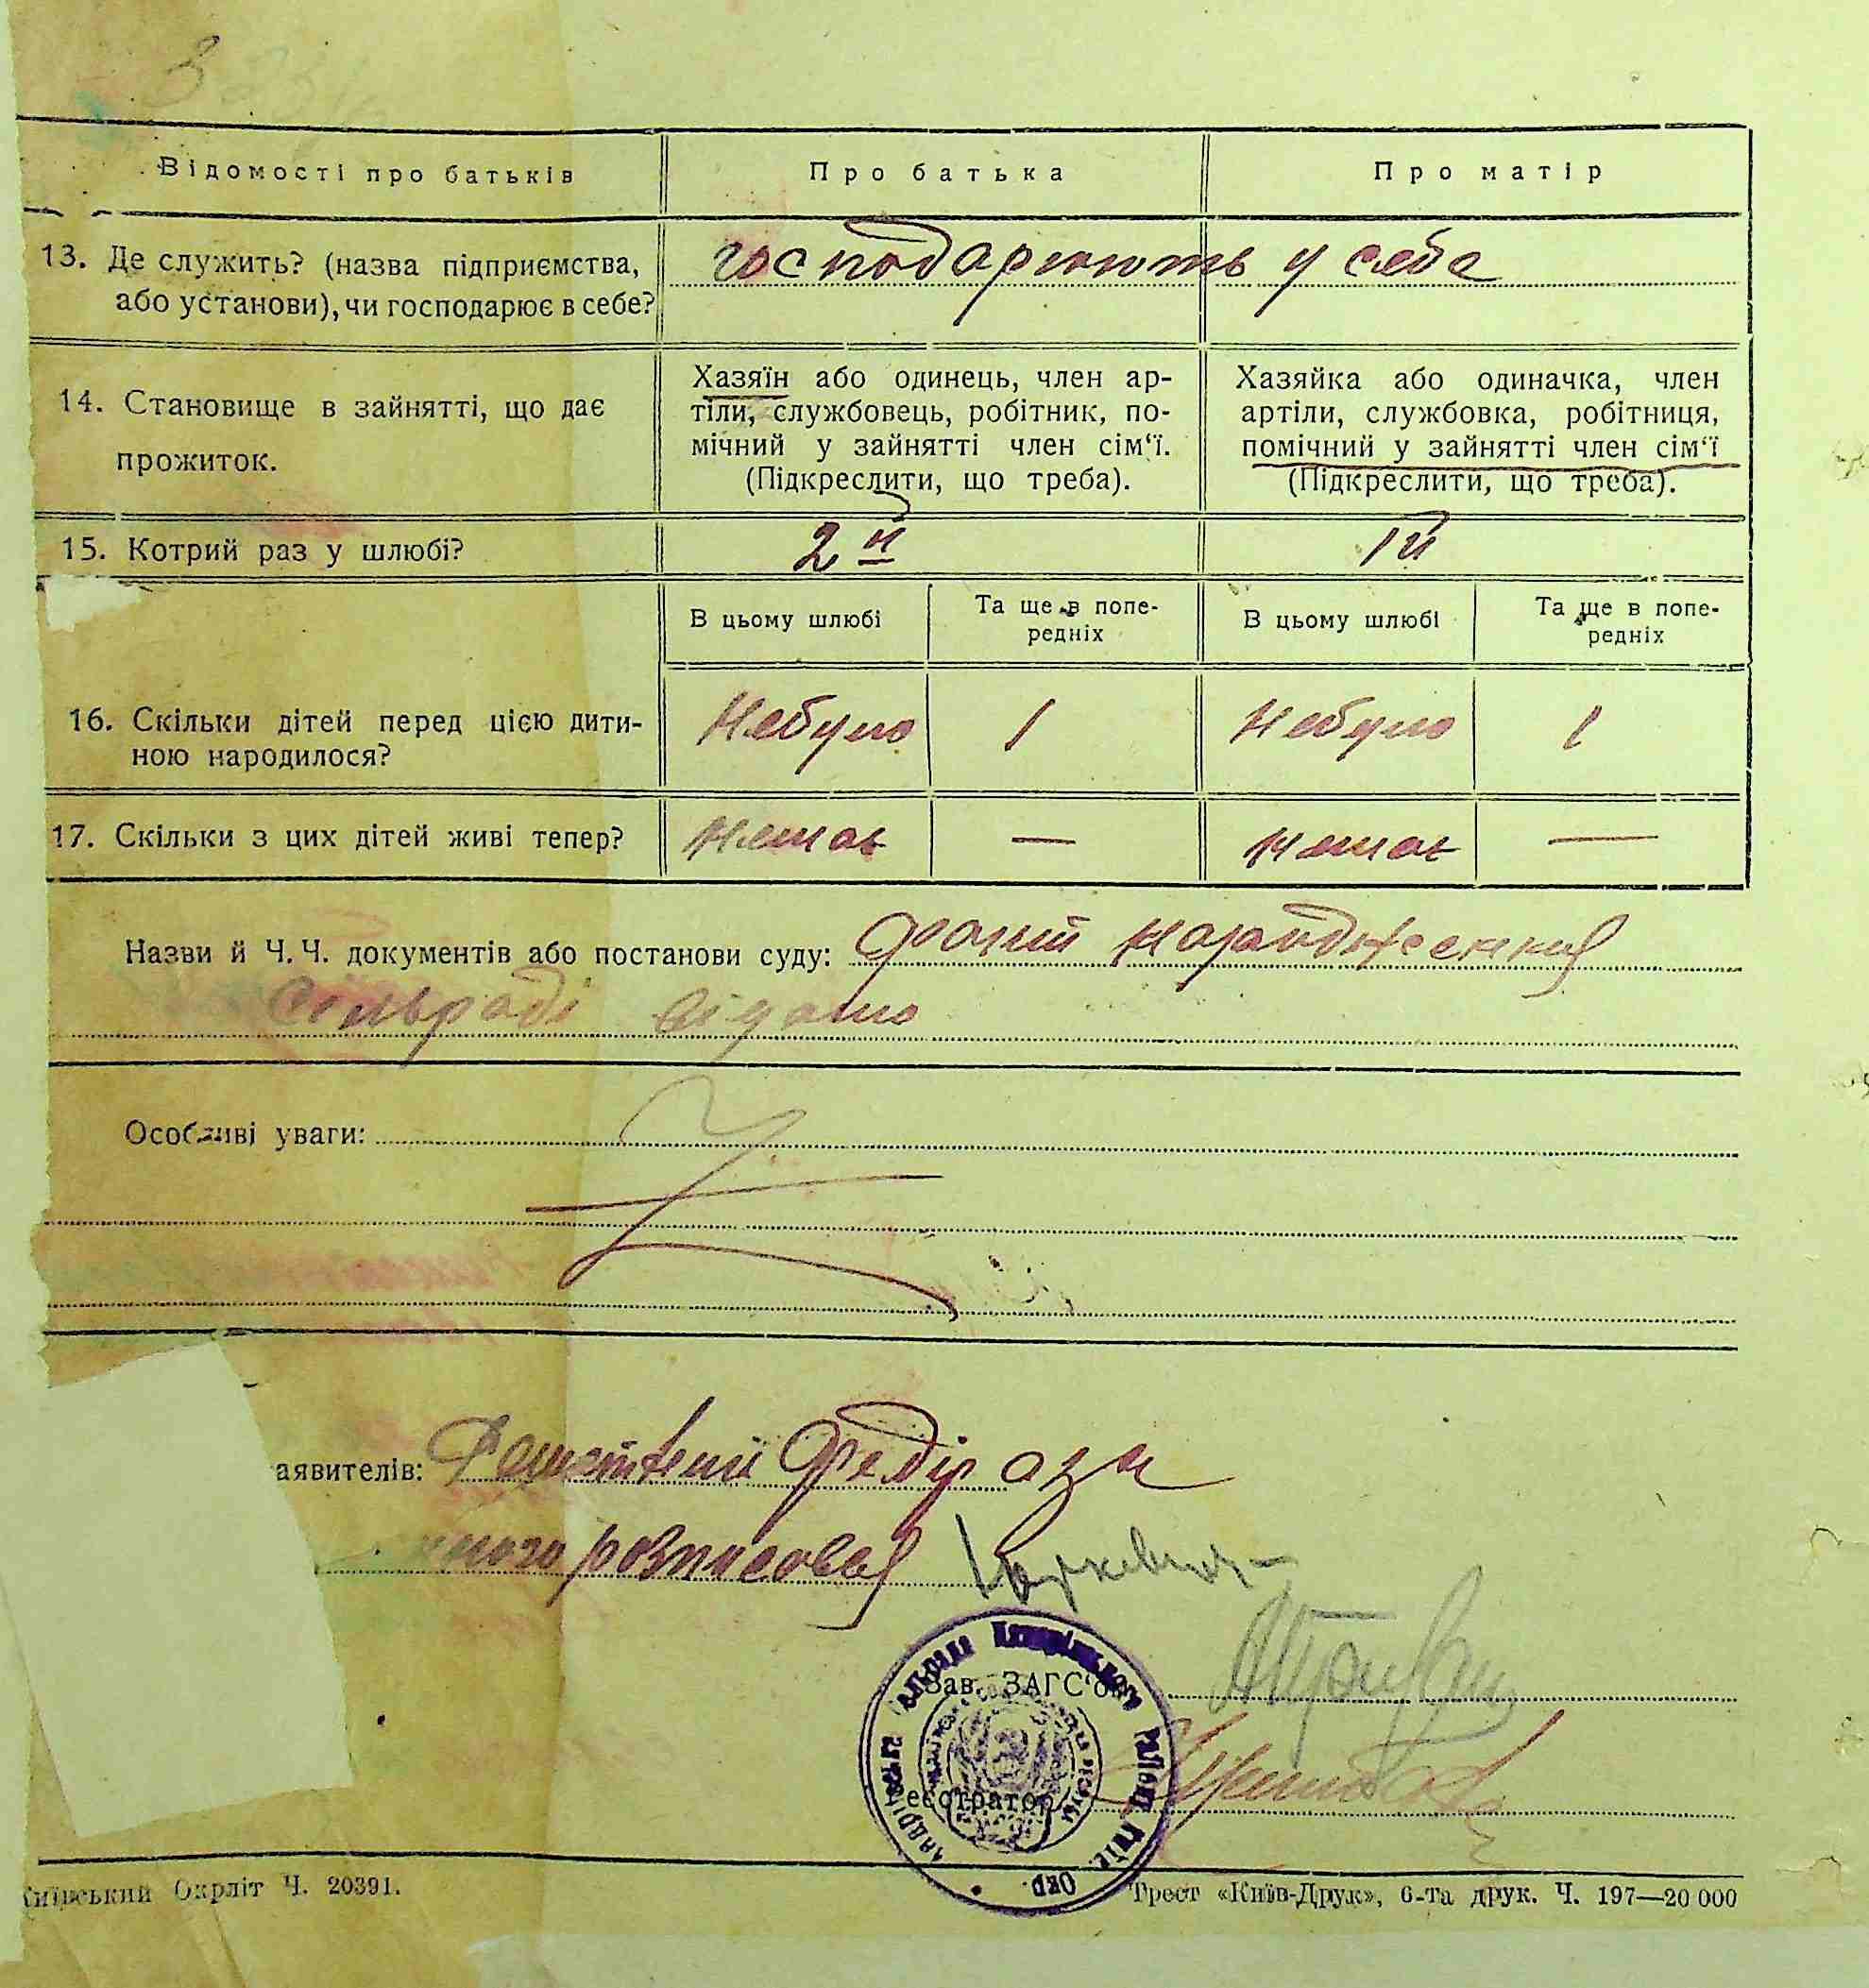 Відомості про батьків
Про батька
Про матір
13. Де служить? (назва підприємства,
або установи), чи господарює в себе?
господарюють у себе
14. Становище в зайнятті, що дає
прожиток.
Хазяїн або одинець, член ар-
тіли, службовець, робітник, по-
мічний у зайнятті член сім‘ї.
(Підкреслити, що треба).
Хазяйка або одиначка, член
артіли, службовка, робітниця,
помічний у зайнятті член сім‘ї
(Підкреслити, що треба).
15. Котрий раз у шлюбі?
2й
1й
В цьому шлюбі
Та ще в попе-
редніх
В цьому шлюбі
Та ще в попе-
редніх
16. Скільки дітей перед цією дити-
ною народилося?
Небуло
1
Небуло
1
17. Скільки з цих дітей живі тепер?
Немає
—
немає
—
Назви й Ч. Ч. документів або постанови суду:
Сільраді відомо
Особливі уваги:
аявителів: Федір а за
нього розписовся
Зав. ЗАГС‘ом
еєстратор
Київський Окрліт Ч. 20391.
Трест «Київ-Друк», 6-та друк. Ч. 197—20 000